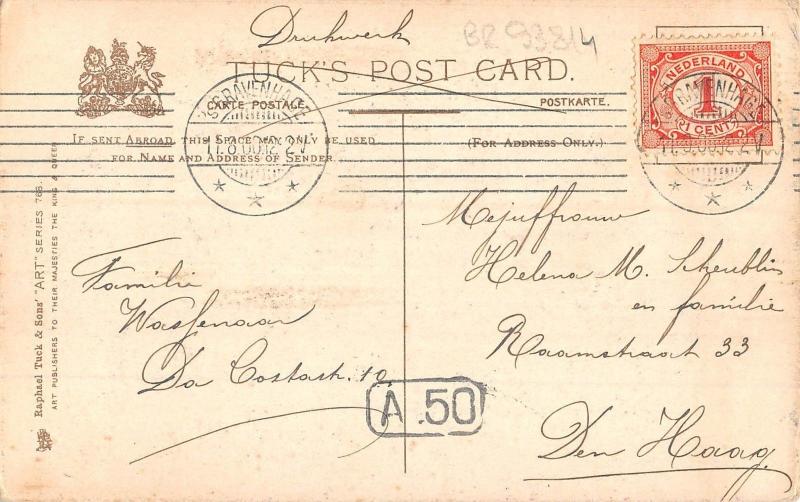 Drukwerk
BR 93814
TUCK'S POST CARD.
CARTE POSTALE.
POSTKARTE.
IF SENT ABROAD, THIS SPACE MAY ONLY BE USED
FOR NAME AND ADDRESS OF SENDER.
(FOR ADDRESS ONLY.)
'S GRAVENHAGE
NEDERLAND
1
1 CENT
GRAVENHAGE
Raphael Tuck & Sons' "ART" SERIES
ART PUBLISHERS TO THEIR MAJESTIES THE KING & QUEEN
Familie
Wassenaar
Da Costastr. 10.
A .50
Mejuffrouw
Helena M. Scheublin
en familie
Raamstraat 33
Den Haag.